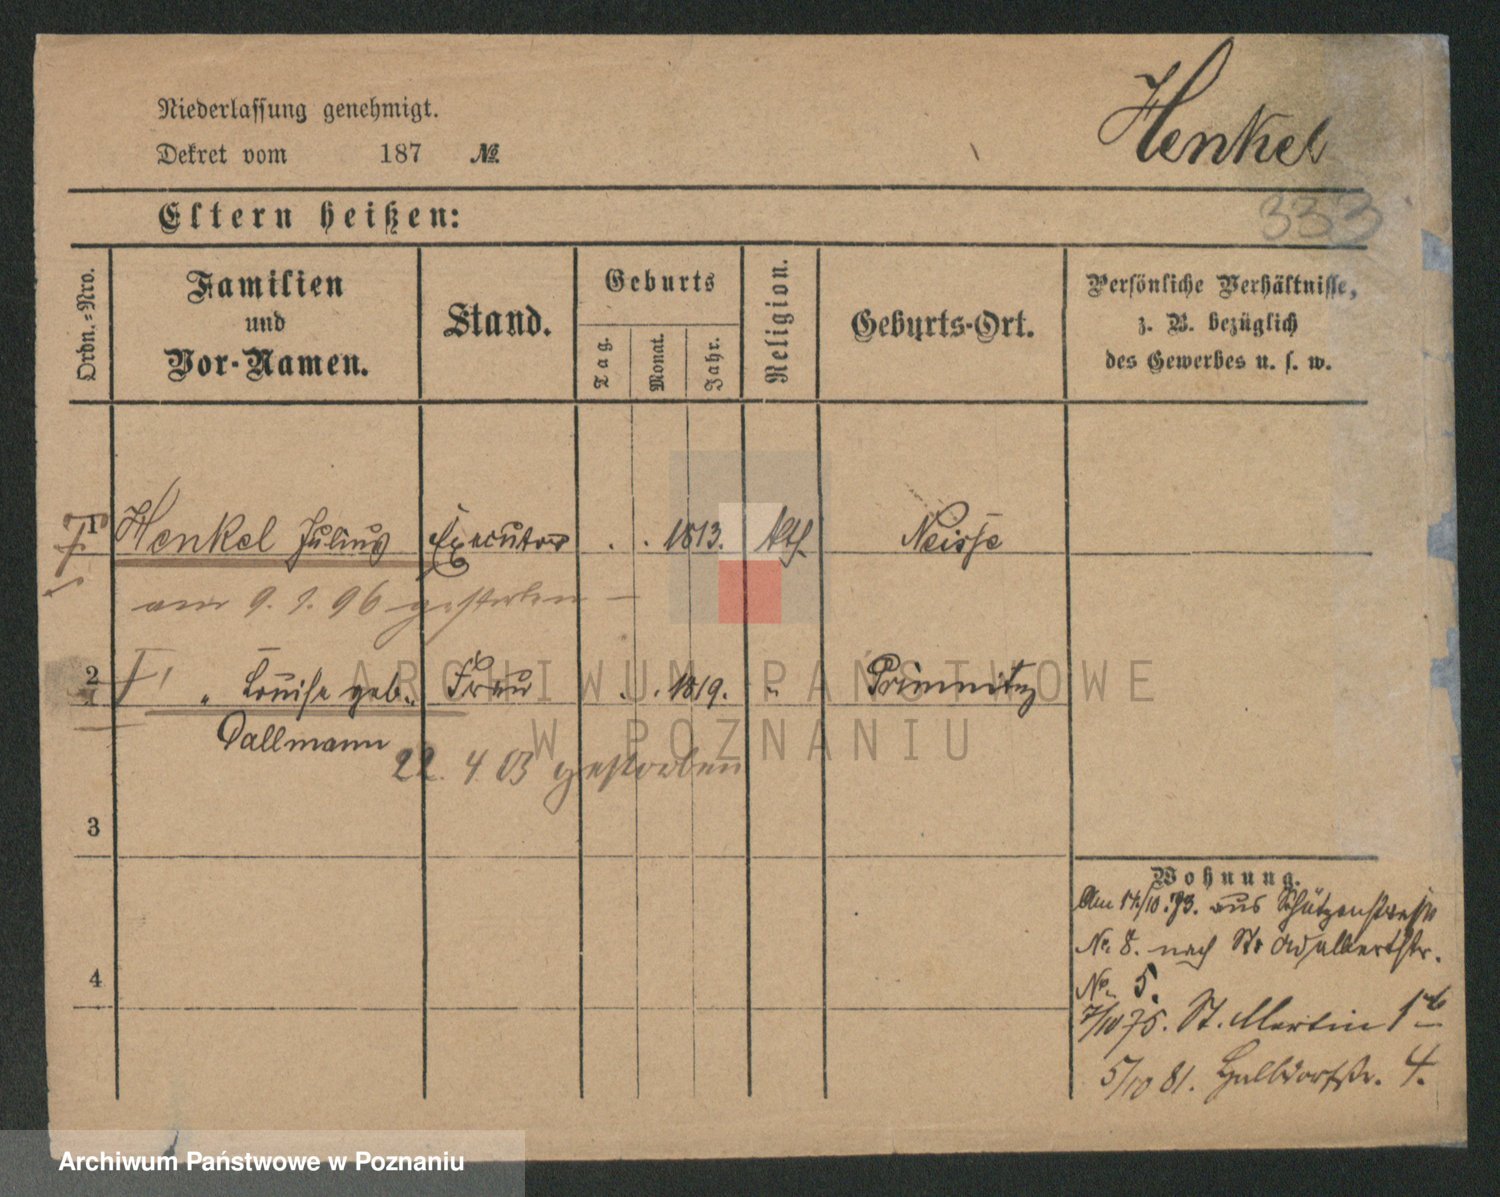 Niederlassung genehmigt.
Henkel
Dekret vom 187 №
333
Eltern heißen:
Ordn.-Nro.
Familien
und
Vor-Namen.
Stand.
Geburts
Tag.
Monat.
Jahr.
Religion.
Geburts-Ort.
Persönliche Verhältnisse,
z. B. bezüglich
des Gewerbes u. s. w.
1 Henkel Julius Executor . . 1813. kth. Neisse
am 9. 1. 96 gestorben —
2 " Louise geb. Frau . . 1819. " Primnitz
Dallmann
22. 4 03 gestorben
3
4
Wohnung.
Am 14/10.73. aus Schützenstrasse
No. 8. nach St. Adalbertstr.
No. 5.
7/10 75. St. Martin 1
5/10 81. Halbdorfstr. 4.
ARCHIWUM PAŃSTWOWE
W POZNANIU
Archiwum Państwowe w Poznaniu